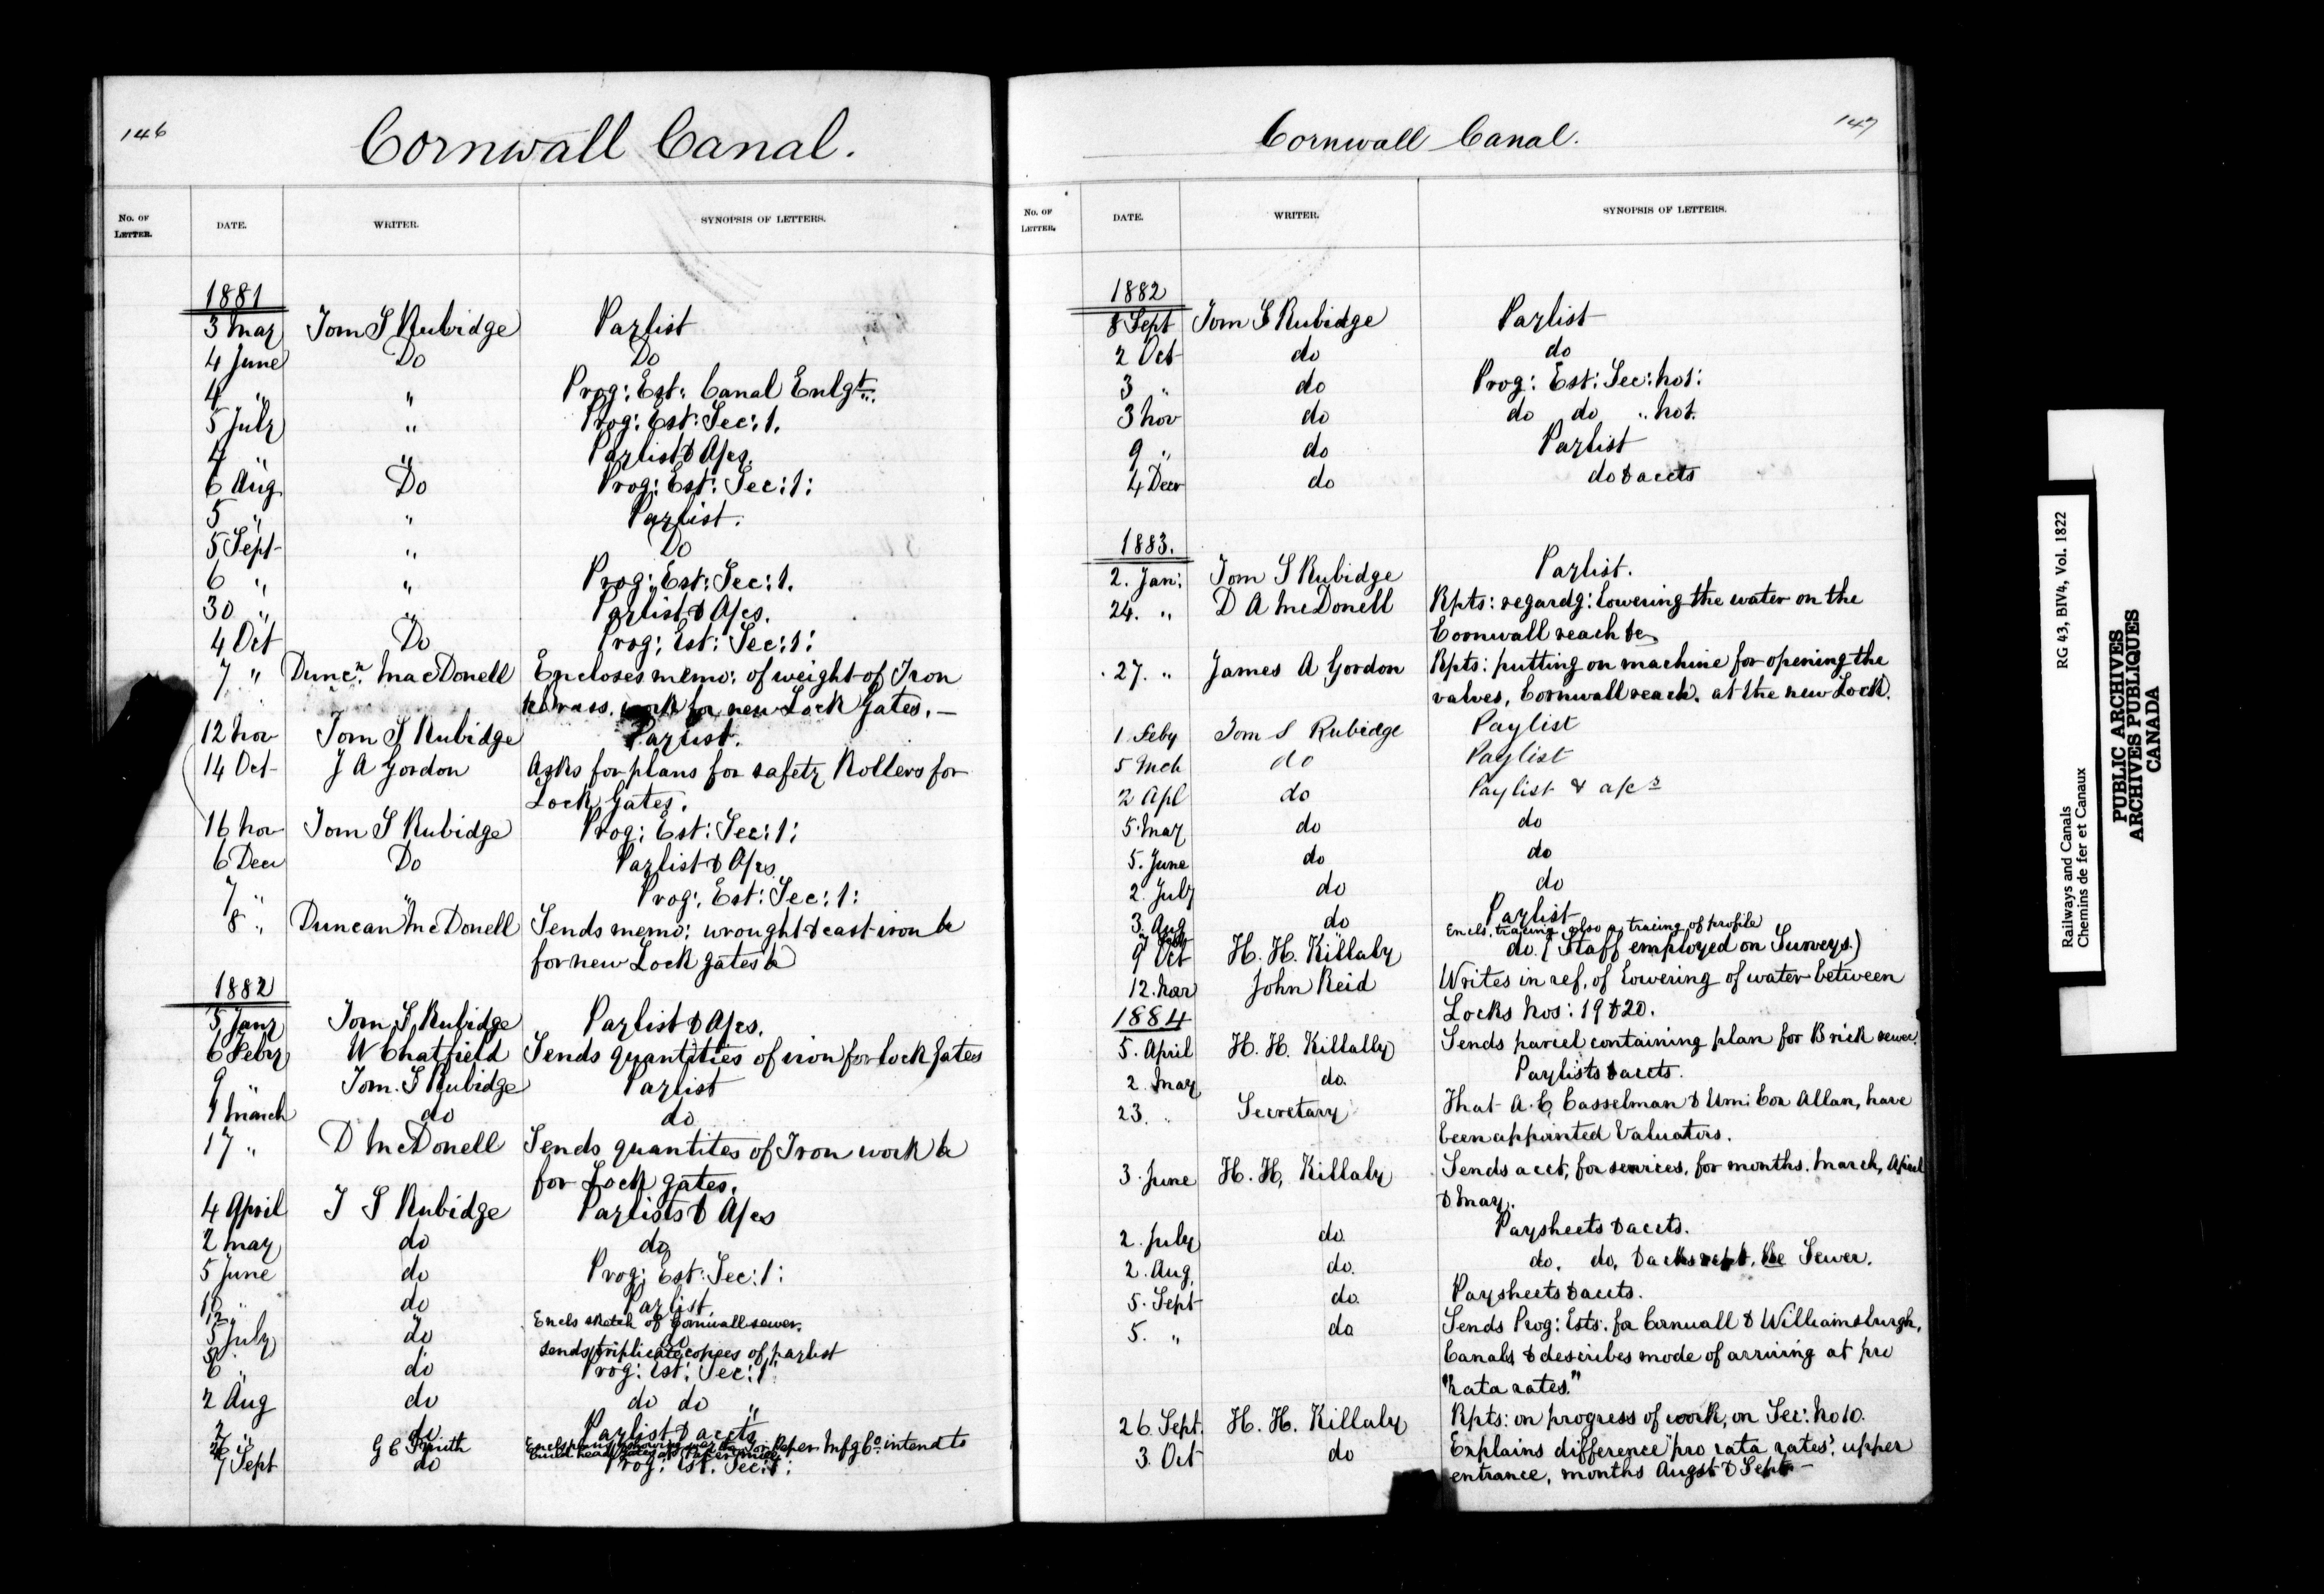 146
Cornwall Canal.
No. OF LETTER.
DATE.
WRITER.
SYNOPSIS OF LETTERS.
1881
3 May Tom S Rubidge Paylist
4 June Do Do
4 " " Prog: Est: Canal Enlgt.
5 July " Prog: Est: Sec: 1.
4 " " Paylist & A/cs.
6 Aug Do Prog: Est: Sec: 1:
5 " " Paylist.
5 Sept " Do
6 " " Prog: Est: Sec: 1.
30 " " Paylist & A/cs.
4 Oct Do Prog: Est: Sec: 1:
7 " Duncn. MacDonell Encloses memo: of weight of Iron
work for new Lock Gates. —
12 Nov Tom S Rubidge Paylist.
14 Oct J A Gordon Asks for plans for safety Rollers for
Lock Gates.
16 Nov Tom S Rubidge Prog: Est: Sec: 1:
6 Decr Do Paylist & A/cs
7 " " Prog: Est: Sec: 1:
8 " Duncan McDonell Sends memo: wrought & cast iron &c
for new Lock gates &c
1882
5 Jany Tom S Rubidge Paylist & A/cs.
6 Feby W Chatfield Sends quantities of iron for lock gates
9 " Tom. S Rubidge Paylist
7 March do do
17 " D McDonell Sends quantites of Iron work &c
for Lock gates.
4 April T S Rubidge Paylists & A/cs
2 May do do
5 June do Prog: Est: Sec: 1:
10 " do Paylist
12 " Encls sketch of Cornwall sewer.
5 July do do
5 " sends triplicate copies of paylist
6 " do Prog: Est: Sec: 1:
2 Aug do do do "
2 " do Paylist & accts
26 " G C Smith Encls plans showing way Paper Mfg Co. intend to
build head gates at Paper mill
7 Sept do Prog: Est. Sec: 1:
147
Cornwall Canal.
No. OF LETTER.
DATE.
WRITER.
SYNOPSIS OF LETTERS.
1882
8 Sept Tom S Rubidge Paylist
2 Oct do do
3 " do Prog: Est: Sec: No 1:
3 Nov do do do " No 1.
9 " do Paylist
4 Decr do do & accts
1883.
2. Jan: Tom S Rubidge Paylist.
24. " D A McDonell Rpts: regardg: lowering the water on the
Cornwall reach &c
27. " James A Gordon Rpts: putting on machine for opening the
valves, Cornwall reach. at the new Lock.
1 Feby Tom S Rubidge Paylist
5 Mch do Paylist
2 Apl do Paylist & a/cs
5. May do do
5. June do do
2. July do do
3. Aug do Paylist
Encls. tracing also a tracing of profile
9 Oct H. H. Killaly do. (Staff employed on Surveys.)
12. Nov John Reid Writes in ref. of lowering of water between
Locks Nos: 19 & 20.
1884
5. April H. H. Killally Sends parcel containing plan for Brick sewer.
2. May do. Paylists & accts.
23. " Secretary That A. E. Casselman & Wm: Cox Allan, have
been appointed Valuators.
3. June H. H. Killaly Sends acct, for services, for months, March, April
& May.
2. July do. Paysheets & accts.
2. Aug do. do. do. Sewer.
5. Sept do. Paysheets & accts.
5. " do Sends Prog: Ests: for Cornwall & Williamsburgh,
Canals & describes mode of arriving at pro
"rata rates."
26 Sept. H. H. Killaly Rpts: on progress of work, on Sec: No 10.
3. Oct do Explains difference "pro rata rates", upper
entrance, months Augst & Sept. —
Railways and Canals RG 43, BIV4, Vol. 1822
Chemins de fer et Canaux
PUBLIC ARCHIVES
ARCHIVES PUBLIQUES
CANADA